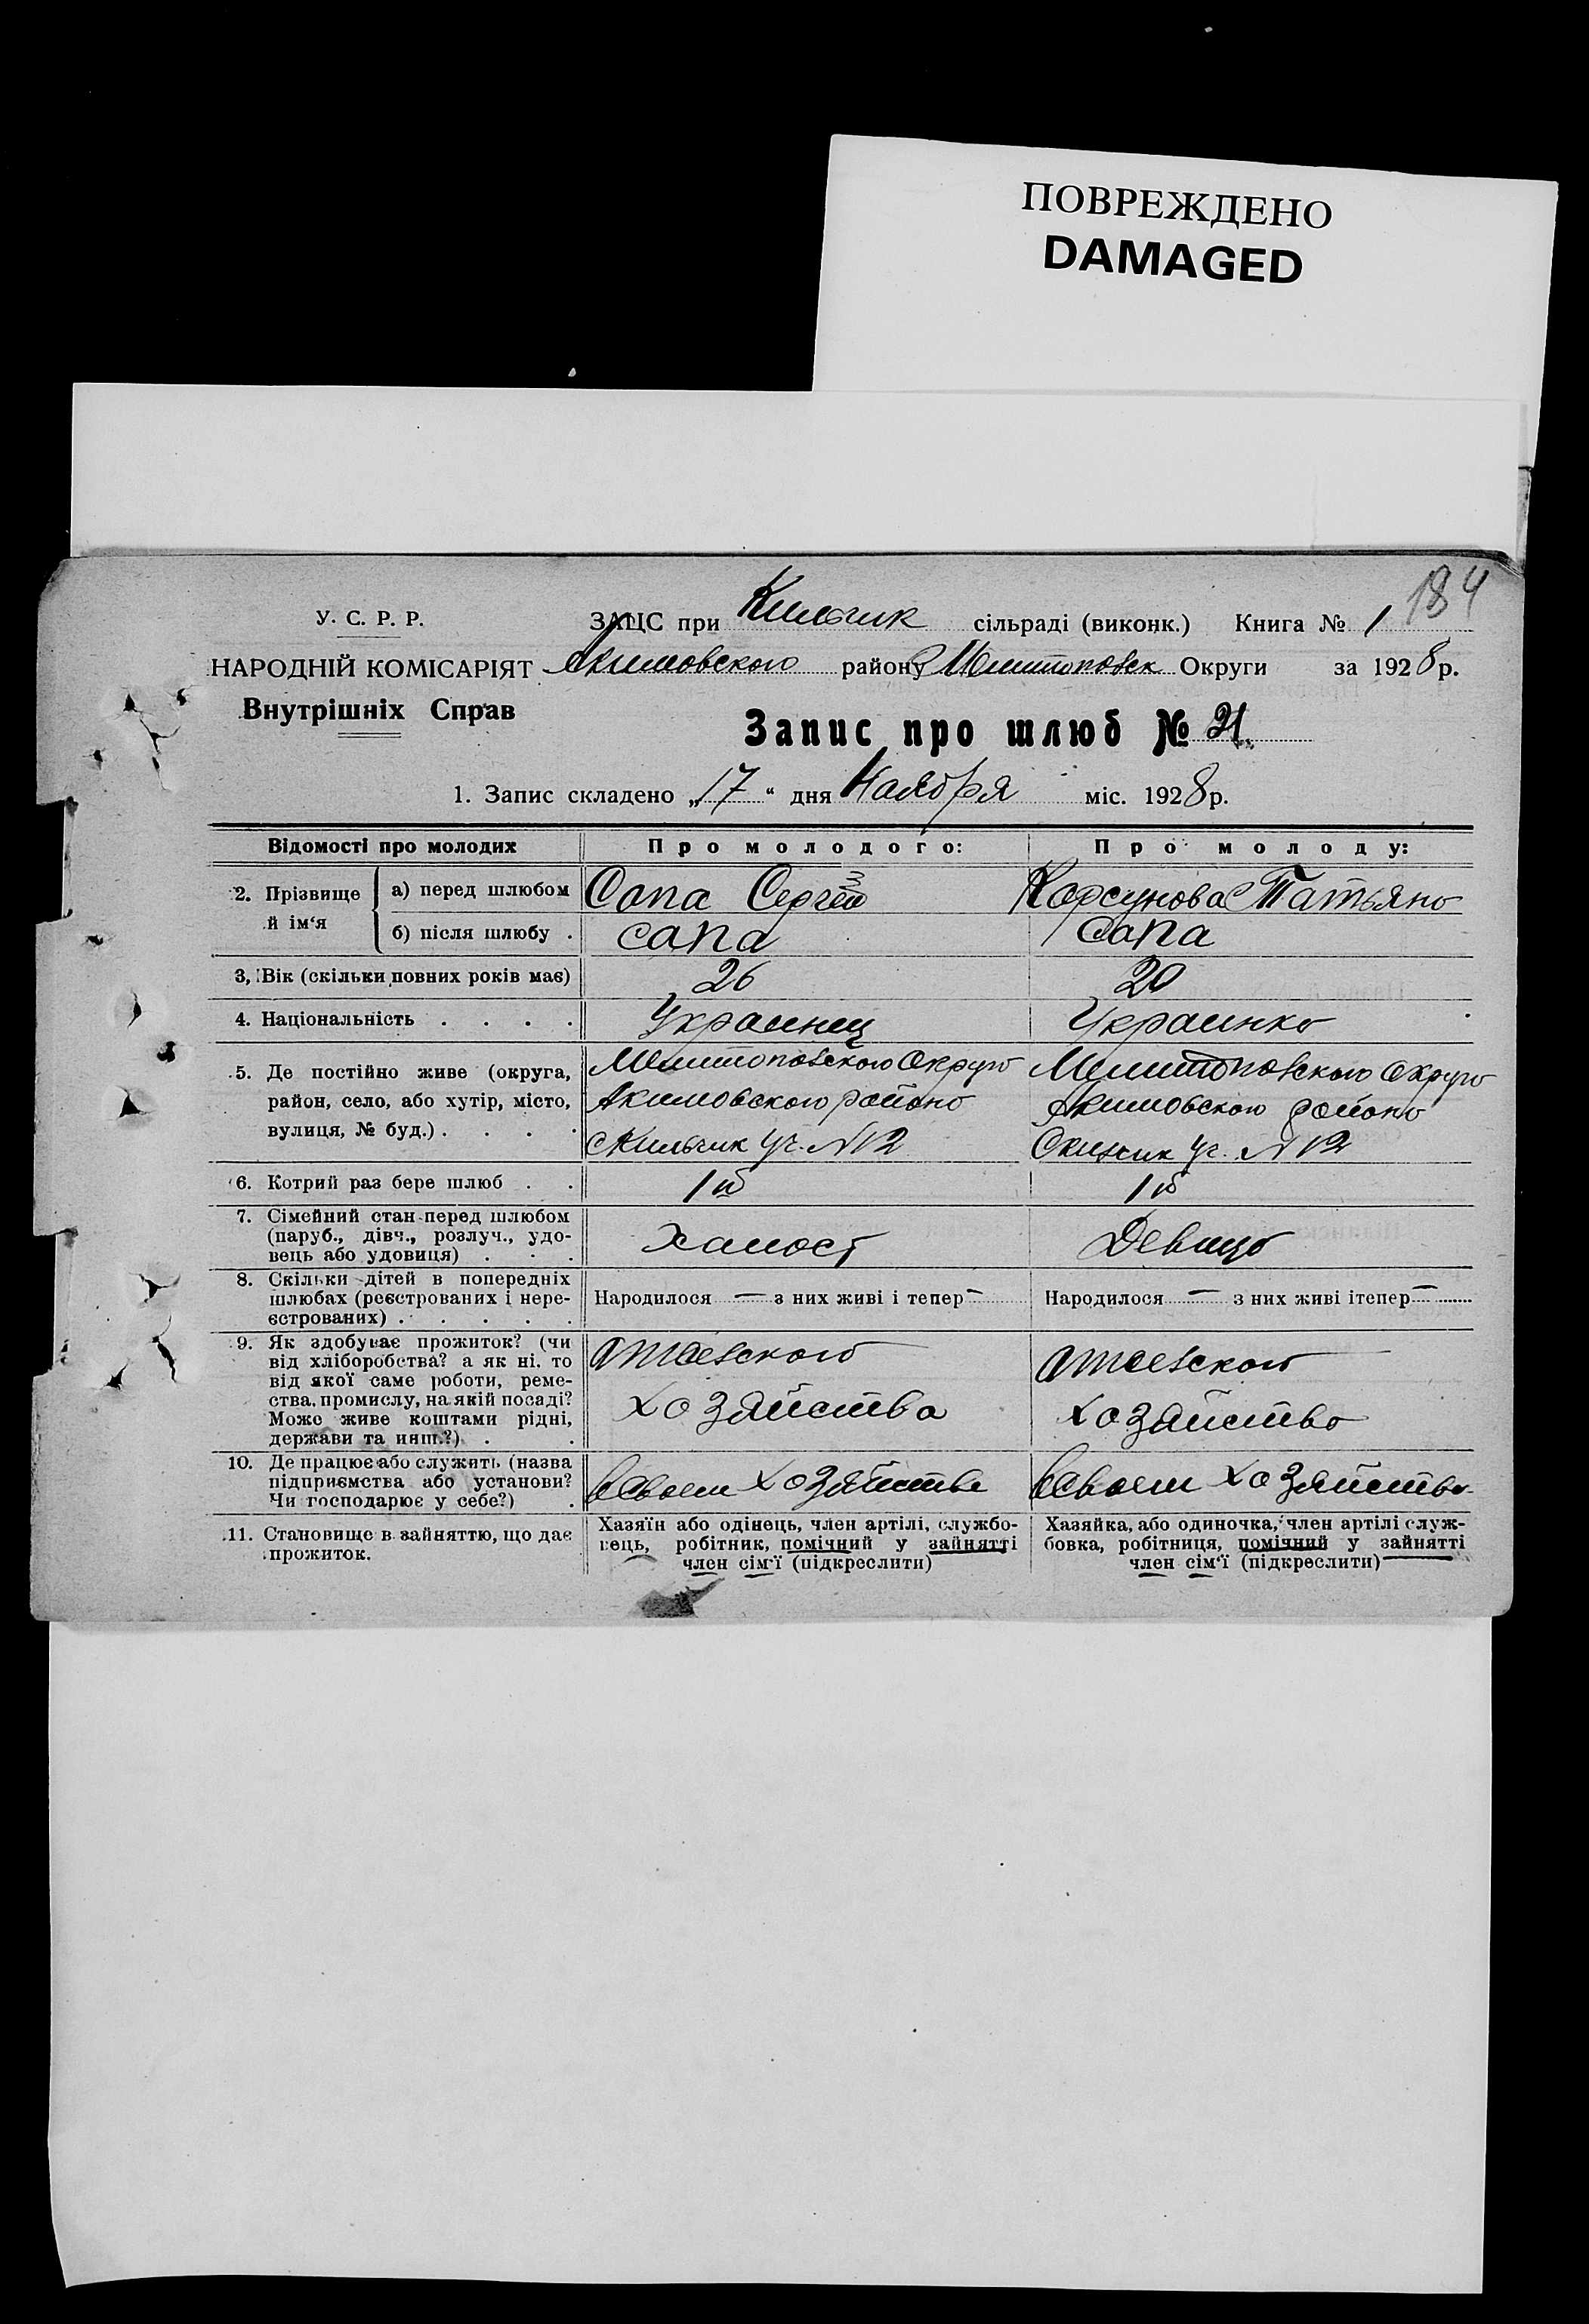 ПОВРЕЖДЕНО
DAMAGED
184
У. С. Р. Р.
ЗАЦС при Кильчик сільраді (виконк.) Книга № 1
НАРОДНІЙ КОМІСАРІЯТ Акимовского району Мелитопольск Округи за 1928 р.
Внутрішніх Справ
Запис про шлюб № 21.
1. Запис складено „17“ дня Ноября міс. 1928 р.
Відомості про молодих Про молодого: Про молоду:
2. Прізвище й ім‘я а) перед шлюбом Сапа Сергей Корсунова Татьяна
б) після шлюбу . сапа Сапа
3. Вік (скільки повних років має) 26 20
4. Національність . . . . Украинец Украинка
5. Де постійно живе (округа, район, село, або хутір, місто, вулиця, № буд.) . . . .
Мелитопольского Округа Мелитопольского Округа
Акимовского района Акимовского района
с Кильчик уч. N 12 С Кильчик уч. N 12
6. Котрий раз бере шлюб . . 1й 1й
7. Сімейний стан перед шлюбом
(паруб., дівч., розлуч., удо-
вець або удовиця) . . .
Халост Девица
8. Скільки дітей в попередніх
шлюбах (реєстрованих і нере-
єстрованих) . . . . .
Народилося — з них живі і тепер — Народилося — з них живі ітепер —
9. Як здобуває прожиток? (чи
від хліборобства? а як ні, то
від якої саме роботи, реме-
ства, промислу, на якій посаді?
Може живе коштами рідні,
держави та инш.?) . .
отцевского отцевского
хозяйства хозяйства
10. Де працює або служить (назва
підприємства або установи?
Чи господарює у себе?) .
в своем хозяйстве в своем хозяйстве
11. Становище в зайняттю, що дає
прожиток.
Хазяїн або одінець, член артілі, службо-
вець, робітник, помічний у зайнятті
член сім‘ї (підкреслити)
Хазяйка, або одиночка, член артілі служ-
бовка, робітниця, помічний у зайнятті
член сім‘ї (підкреслити)